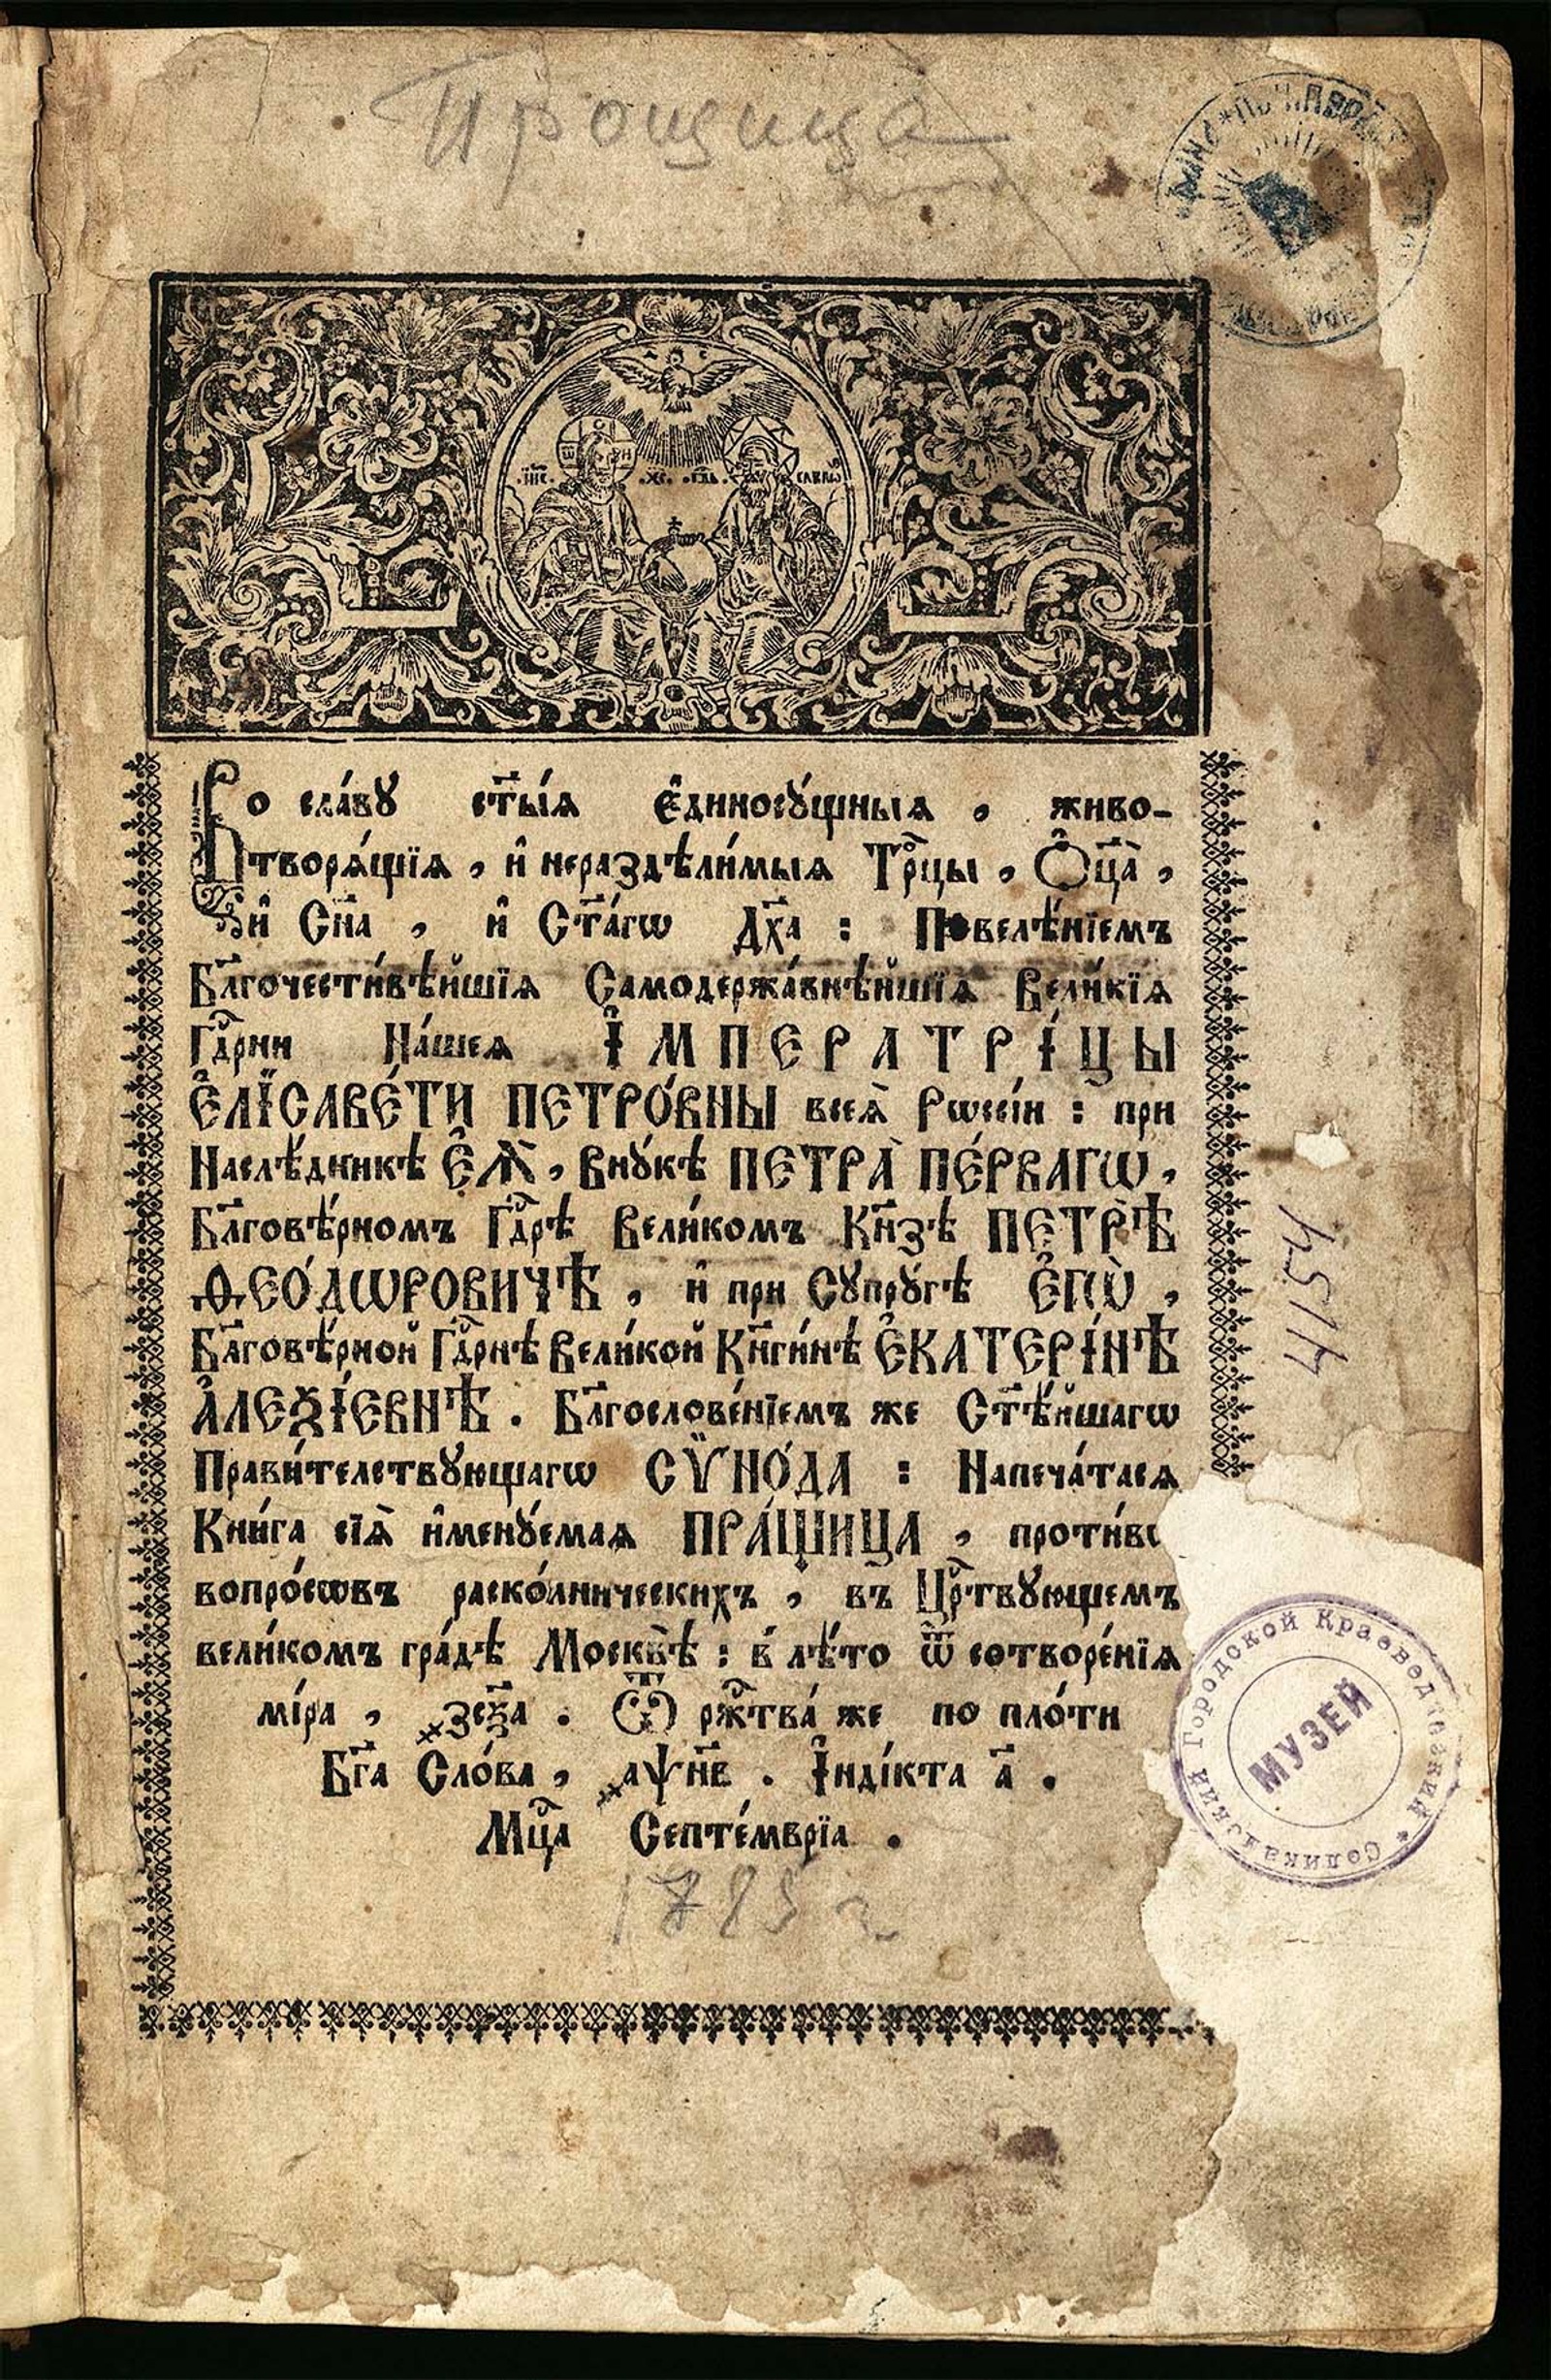 Прощица
.І҃ИС. .Х҃С. .Г҃ДЬ. САВАѠ҃
Во сла́вꙋ ст҃ы́ѧ є҆диносꙋ́щныѧ , живо-
творѧ́щїѧ , и҆ нераздѣли́мыѧ Трⷪ҇цы , Ѻ҆ц҃а̀ ,
и҆ Сн҃а , и҆ Ст҃а́гѡ Дх҃а : Повелѣ́нїемъ
Бл҃гочести́вѣйшїѧ Самодержа́внѣйшїѧ Вели́кїѧ
Гдⷭ҇рни На́шеѧ І҆МПЕРАТРІ́ЦЫ
Є҆ЛІСАВЕ́ТИ ПЕТРО́ВНЫ всеѧ̀ Рѡссі́и : при
Наслѣ́дникѣ Є҆Ѧ̀ , Внꙋ́кѣ ПЕТРА̀ ПЕ́РВАГѠ ,
Бл҃говѣ́рномъ Гдⷭ҇рѣ Вели́комъ Кн҃зѣ ПЕТРѢ̀
Ѳ҆ЕО́ДѠРОВИЧѢ , и҆ при Сꙋпрꙋ́гѣ Є҆ГѠ̀ ,
Бл҃говѣ́рной Гдⷭ҇рнѣ Вели́кой Кн҃ги́нѣ Є҆КАТЕРІ́НѢ
А҆ЛЕѮІ́ЕВНѢ . Бл҃гослове́нїемъ же Ст҃ѣ́йшагѡ
Прави́телствꙋющагѡ СѴНО́ДА : Напеча́тасѧ
Кни́га сїѧ̀ и҆менꙋ́емаѧ ПРА́ЩИЦА , проти́вꙋ
вопро́сѡвъ раско́лническихъ , въ Црⷭ҇твꙋющемъ
вели́комъ гра́дѣ Москвѣ̀ : в̾ лѣ́то ѿ сотворе́нїѧ
мі́ра , ҂зсѯ҃а . Ѿ ржⷭ҇тва́ же по пло́ти
Бг҃а Сло́ва , ҂аѱн҃в . І҆ндікта а҃ .
Мцⷭ҇а Септе́мврїа .
4574
Соликамский Городской Краеведческий *
МУЗЕЙ
1785 г